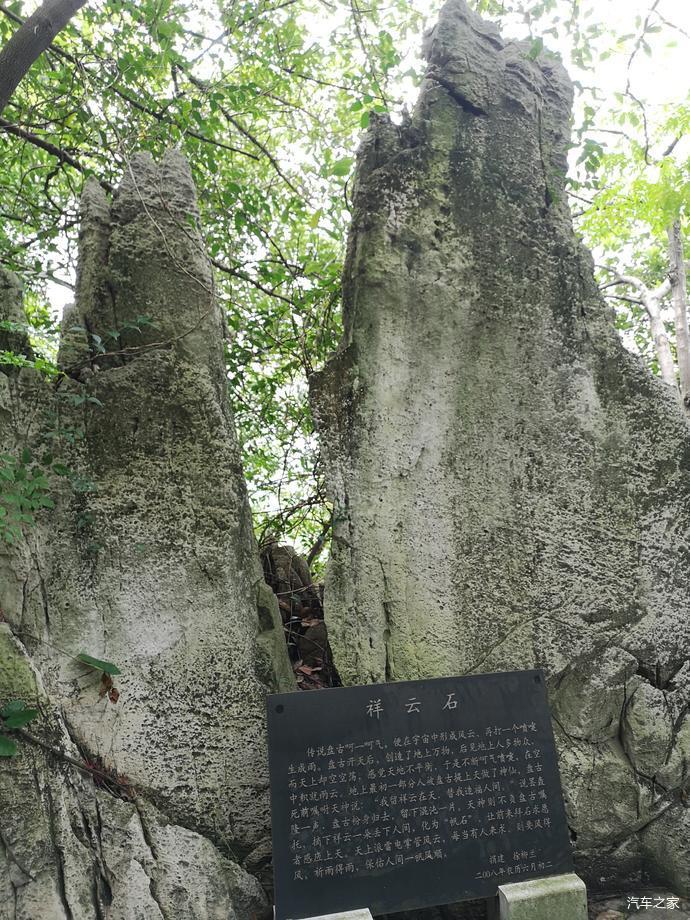 祥云石
传说盘古呵一呵气，便在宇宙中形成风云、再打一个喷嚏
生成雨。盘古开天后，创造了地上万物，后见地上人多物众、
而天上却空空荡，感觉天地不平衡，于是不断呵气喷嚏，在空
中积就雨云。地上最初一部分人被盘古提上天做了神仙。盘古
死前嘱咐天神说：“我留祥云在天，替我造福人间。”说罢轰
隆一声，盘古粉身归去，留下混沌一片，天神则不负盘古嘱
托，摘下祥云一朵丢下人间，化为“帆石”，让前来拜石求愿
者感应上天。天上派雷电掌管风云，每当有人来求，则要风得
风，祈雨得雨，保佑人间一帆风顺。
滇建 徐柳兰
二00八年农历六月初二
汽车之家